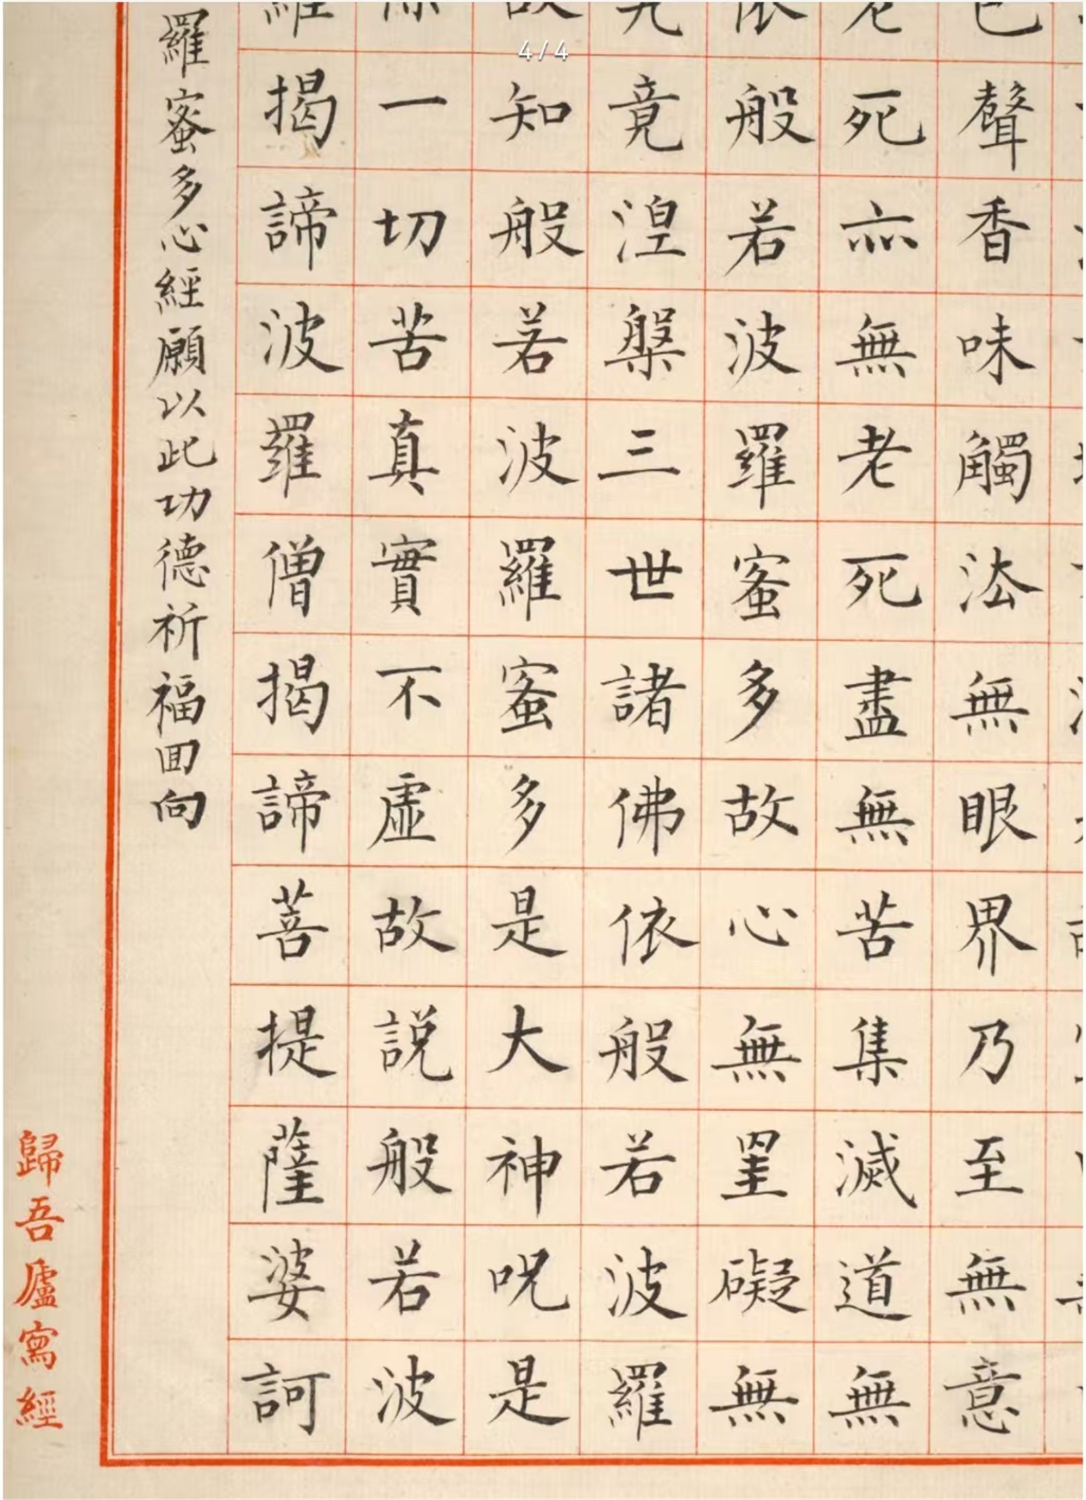 4/4
色聲香味觸法無眼界乃至無意
老死亦無老死盡無苦集滅道無
依般若波羅蜜多故心無罣礙無
究竟涅槃三世諸佛依般若波羅
故知般若波羅蜜多是大神呪是
除一切苦真實不虚故説般若波
羅揭諦波羅僧揭諦菩提薩婆訶
羅蜜多心經願以此功德祈福回向
歸吾廬寫經